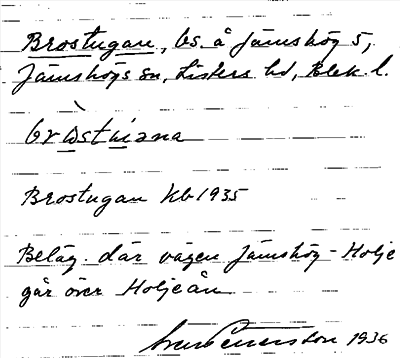 Brostugan, bs. å Jämshög 5,
Jämshögs sn, Listers hd, Blek. l.
Brostugan Kb 1935
Beläg. där vägen Jämshög - Holje
går över Holjeån
1936